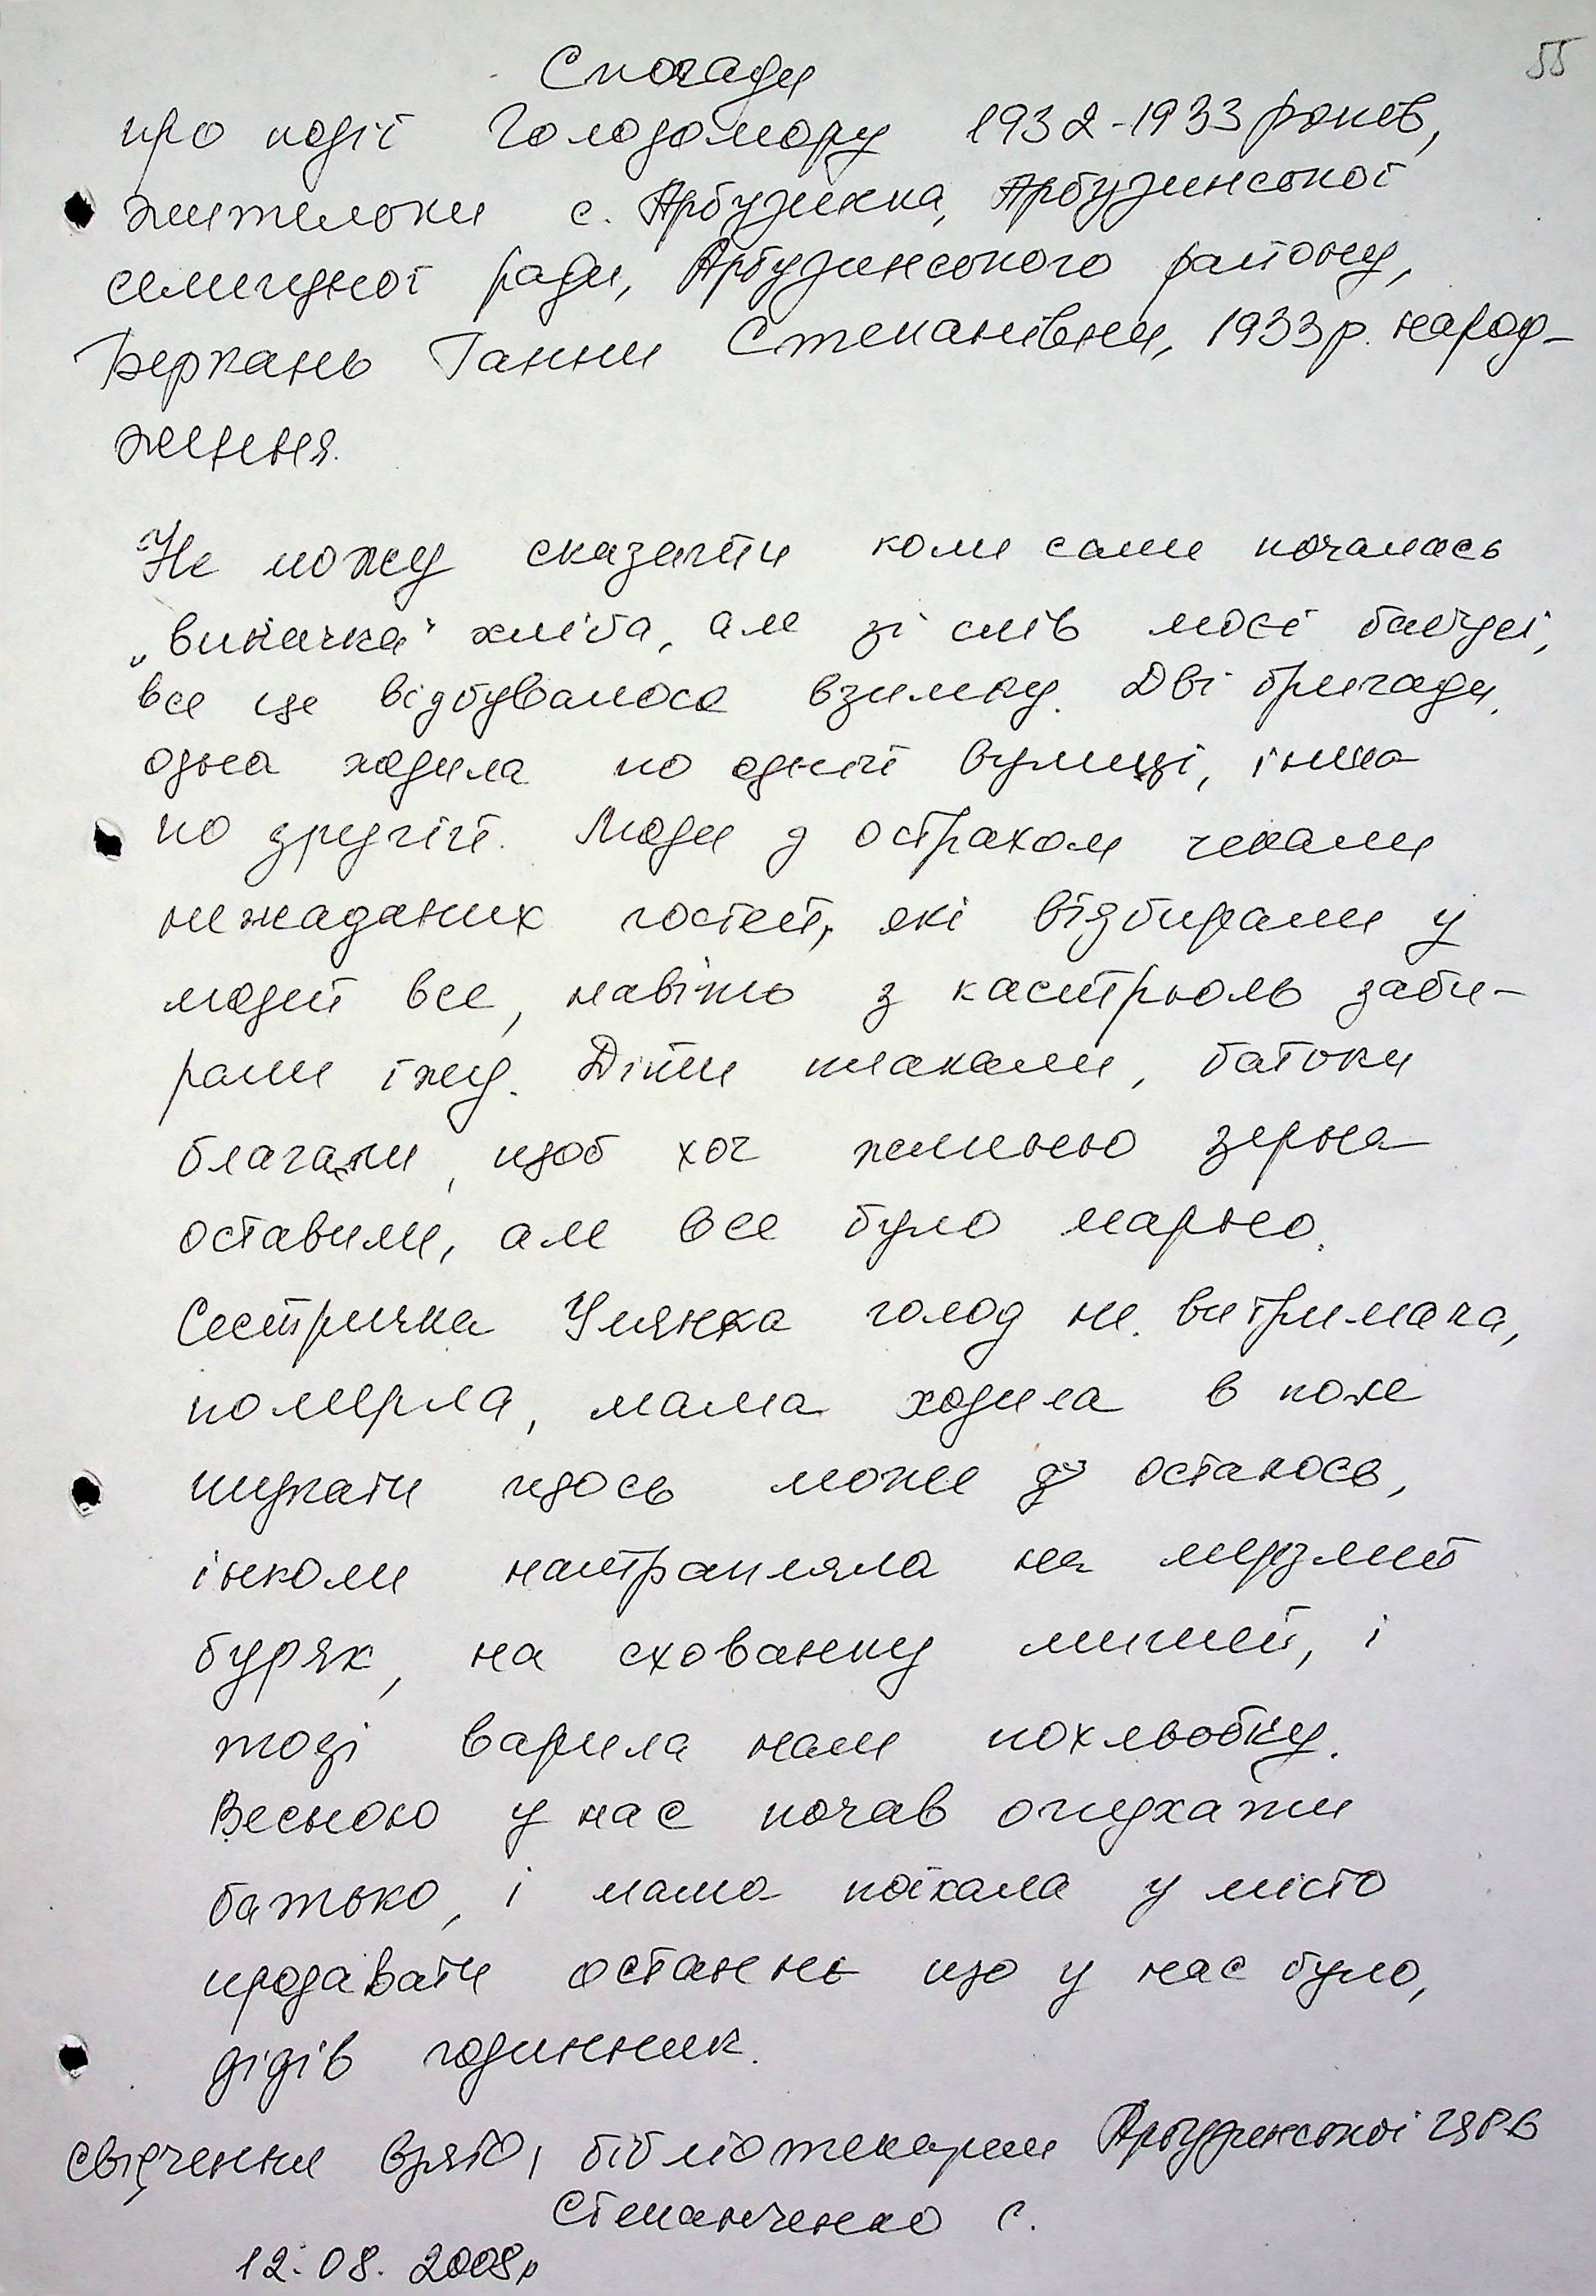 55
Спогади
про події Голодомору 1932-1933 років,
жительки с. Арбузинка, Арбузинської
селищної ради, Арбузинського району,
Беркань Ганни Степанівни, 1933 р. народ-
ження.
Не можу сказати коли саме почалась
„викачка" хліба, але зі слів моєї бабусі,
все це відбувалося взимку. Дві бригади,
одна ходила по одній вулиці, інша
по другій. Люди з острахом чекали
нежаданих гостей, які відбирали у
людей все, навіть з каструль заби-
рали їжу. Діти плакали, батьки
благали, щоб хоч жменею зерна
оставили, але все було марно.
Сестричка Улянка голод не витримала,
померла, мама ходила в поле
шукати щось може де осталось,
інколи натрапляла на мерзлий
буряк, на схованку мишей, і
тоді варила нам похльобку.
Весною у нас почав опухати
батько, і мама поїхала у місто
продавати останнє що у нас було,
дідів годинник.
Свідчення взято, бібліотекарем Арбузинської ЦРБ
Степанченко С.
12.08.2008р